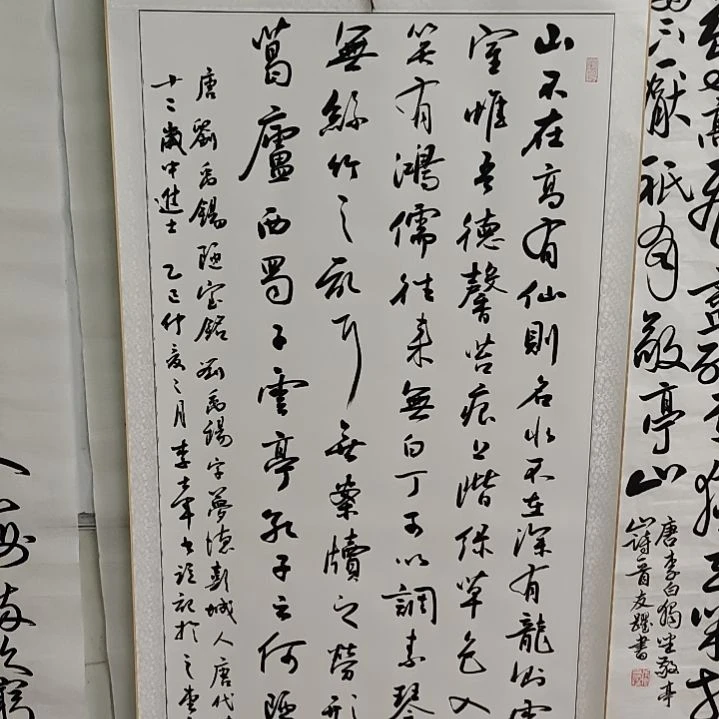 鳥高飛盡孤雲獨去
不厭祇有敬亭山
唐李白獨坐敬亭
山詩
山不在高有仙則名水不在深有龍則
室惟吾德馨苔痕上階綠草色入
笑有鴻儒往來無白丁可以調素琴
無絲竹之亂耳無案牘之勞形
葛廬西蜀子雲亭孔子云何陋
唐劉禹錫陋室銘劉禹錫字夢得彭城人唐代
十二歲中進士 乙巳仲夏之月李